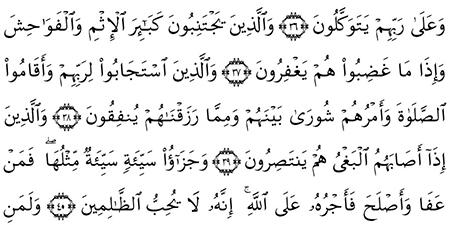 وَعَلَىٰ رَبِّهِمْ يَتَوَكَّلُونَ ﴿٣٦﴾ وَٱلَّذِينَ يَجْتَنِبُونَ كَبَـٰٓئِرَ ٱلْإِثْمِ وَٱلْفَوَٰحِشَ
وَإِذَا مَا غَضِبُوا۟ هُمْ يَغْفِرُونَ ﴿٣٧﴾ وَٱلَّذِينَ ٱسْتَجَابُوا۟ لِرَبِّهِمْ وَأَقَامُوا۟
ٱلصَّلَوٰةَ وَأَمْرُهُمْ شُورَىٰ بَيْنَهُمْ وَمِمَّا رَزَقْنَـٰهُمْ يُنفِقُونَ ﴿٣٨﴾ وَٱلَّذِينَ
إِذَآ أَصَابَهُمُ ٱلْبَغْىُ هُمْ يَنتَصِرُونَ ﴿٣٩﴾ وَجَزَٰٓؤُا۟ سَيِّئَةٍ سَيِّئَةٌ مِّثْلُهَا ۖ فَمَنْ
عَفَا وَأَصْلَحَ فَأَجْرُهُۥ عَلَى ٱللَّهِ ۚ إِنَّهُۥ لَا يُحِبُّ ٱلظَّـٰلِمِينَ ﴿٤٠﴾ وَلَمَنِ